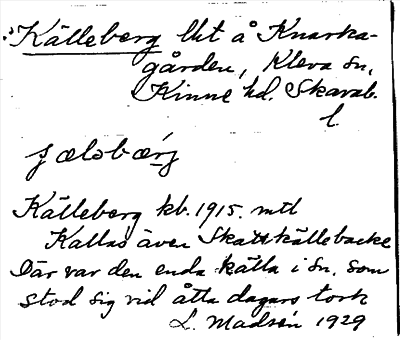 Källeberg lht å Knarka-
gården, Kleva sn,
Kinne hd. Skarab.
l.
jælobærj
Källeberg kb. 1915. mtl
Kallas även Skattkällebacke
Där var den enda källa i sn. som
stod sig vid åtta dagars tork
L. Madsén 1929